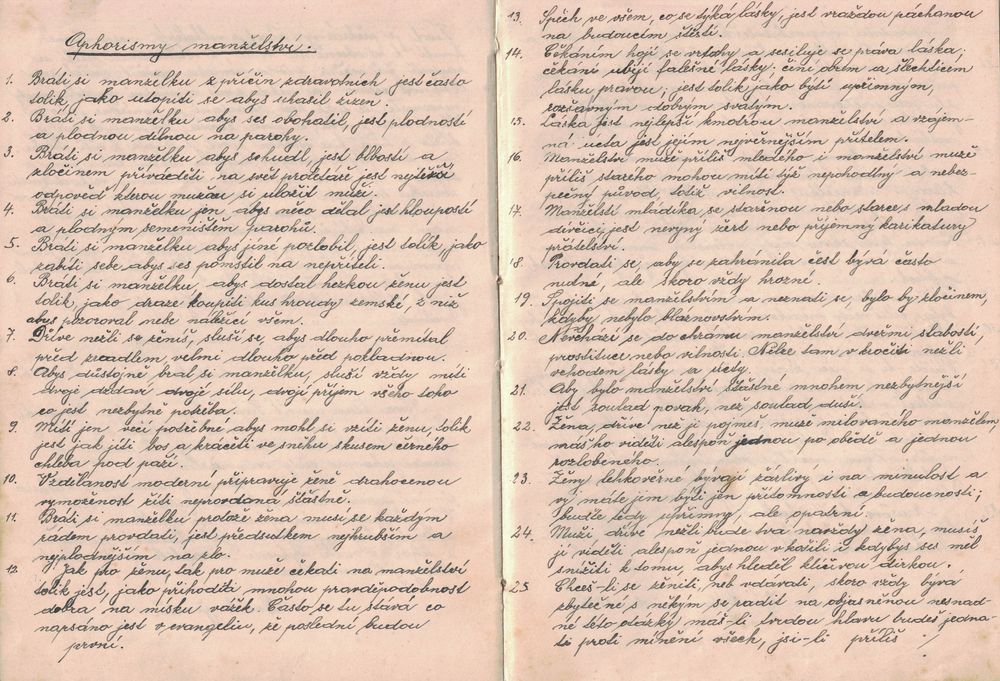 Aphorismy manželství.
1. Bráti si manželku z příčin zdravotních jest často
tolik, jako utopiti se abys uhasil žízeň.
2. Bráti si manželku abys ses obohatil, jest plodností
a plodnou dílnou na parohy.
3. Bráti si manželku abys zchudl, jest blbostí a
zločinem přiváděti na svět proletáře jest nejtišší
odpověď kterou mužeu si uložit muži.
4. Bráti si manželku jen abys něco dělal jest hloupostí
a plodným semeništěm parohů.
5. Bráti si manželku abys jiné pozlobil, jest tolik, jako
zabíti sebe abys ses pomstil na nepříteli.
6. Bráti si manželku, abys dostal hezkou ženu jest
tolik, jako draze koupiti kus hroudy zemské, z níž
abys pozoroval nebe náležící všem.
7. Dříve nežli se ženíš, sluší se, abys dlouho přemítal
před zrcadlem, velmi dlouho před pokladnou.
8. Abys důstojně bral si manželku, sluší vždy míti
dvoje zdraví dvoje sílu, dvojí příjem všeho toho
co jest nezbytně potřeba.
9. Míti jen věcí potřebné abys mohl si vzíti ženu, tolik
jest jak jíti bos a kráčeti ve sněhu s kusem černého
chleba pod paží.
10. Vzdělanost moderní připravuje ženě drahocenou
vymoženost žíti neprovdaná šťastně.
11. Bráti si manželku protože žena musí se každým
řádem provdati, jest předsudkem nejhrubším a
nejplodnějším na zlo.
12. Jak pro ženu, tak pro muže čekati na manželství
tolik jest, jako přihoditi mnohou pravděpodobnost
dobra na misku vážek. Často se tu stává co
napsáno jest v evangeliu, že poslední budou
první.
13. Spěch ve všem, co se týká lásky, jest vraždou páchanou
na budoucím štěstí.
14. Čekáním hojí se vrtohy a sesiluje se pravá láska;
čekání ubíjí falešné lásky; činí orem a šlechticem
lásku pravou; jest tolik jako býti upřímným,
rozšavným dobrým svatým.
15. Láska jest nejlepší kmotrou manželství a vzájem-
ná úcta jest jejím nejvěrnějším přítelem.
16. Manželství muže příliš mladého i manželství muže
příliš starého mohou míti týž nepohodlný a nebez-
pečný původ, totiž vilnost.
17. Manželstí mládíka se stařenou nebo starce s mladou
dívčicí jest nevyný žert nebo příjemný karikatury
přátelství.
18. Provdati se, aby se zahránila čest bývá často
nutné, ale skoro vždy hrozné.
19. Spojiti se manželstvím a neznati se, bylo by zločinem,
kdyby nebylo bláznovstvím.
20. Nevcházej se do chrámu manželství dveřmi slabosti,
prostituce nebo vilnosti. Nelze tam vkročiti nežli
vchodem lásky a úcty.
21. Aby bylo manželství šťastné mnohem nezbytnější
jest soulad povah, než soulad duší.
22. Žena, dříve než ji pojmeš, muže milovaného manželem,
máš ho viděti alespoň jednou po obědě a jednou
rozlobeného.
23. Ženy lehkověrné bývají žárlivý i na minulost a
vy máte jem býti jen přítomnosti a budoucnosti;
buďte tedy upřímny, ale opatrní.
24. Muži dříve nežli bude tvá navždy žena, musíš
ji viděti alespoň jednou v košili i kdybys ses měl
snížiti k tomu, abys hleděl klíčivou dírkou.
25. Chceš-li se ženiti, neb vdávati, skoro vždy bývá
zbytečné s někým se radit na objasněnou nesnad-
né této otázky máš-li tvrdou hlavu budeš jedna-
ti proti mínění všech, jsi-li příliš ./